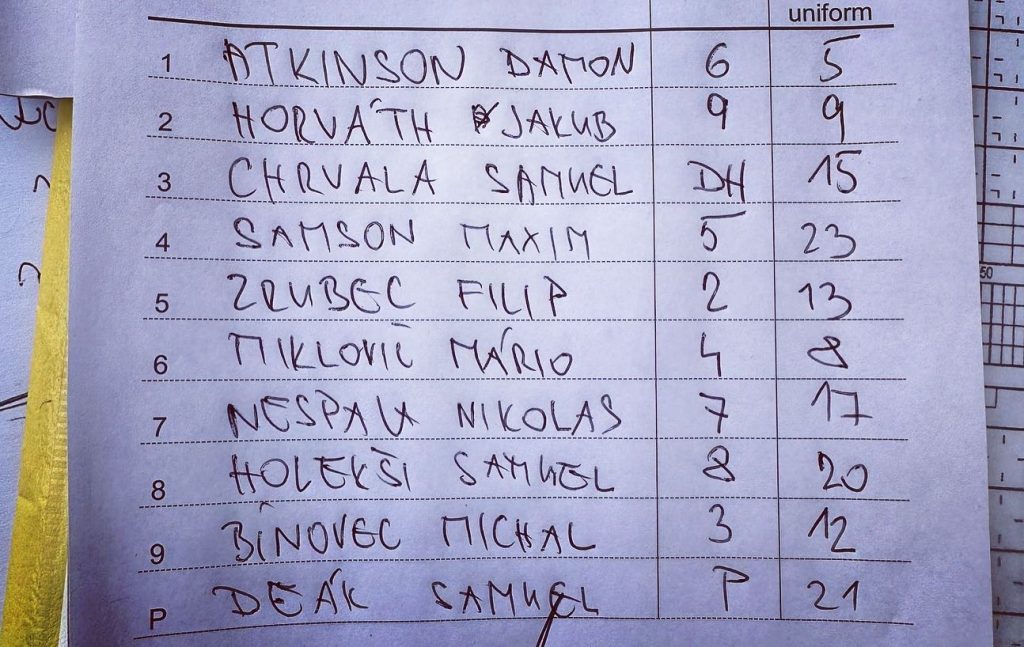 uniform
1 ATKINSON DAMON 6 5
2 HORVÁTH JAKUB 9 9
3 CHRVALA SAMUEL DH 15
4 SAMSON MAXIM 5 23
5 ZRUBEC FILIP 2 13
6 MIKLOVIČ MÁRIO 4 8
7 NESPALA NIKOLAS 7 17
8 HOLEKŠI SAMUEL 8 20
9 BÍNOVEC MICHAL 3 12
P DEÁK SAMUEL P 21
50